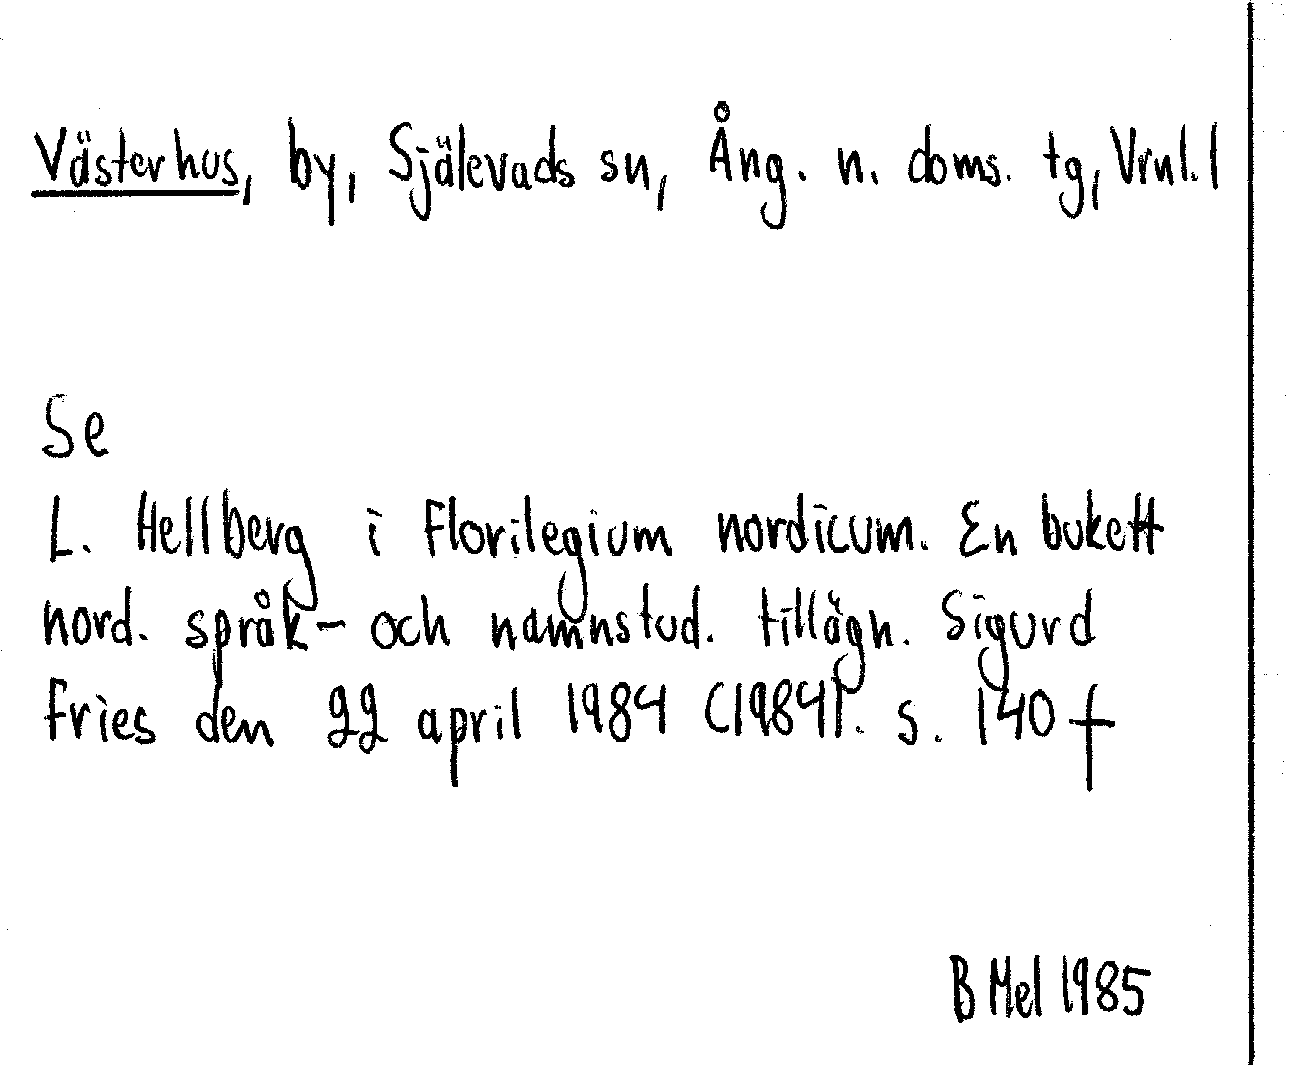 Västerhus, by, Själevads sn, Ång. n. doms. tg, Vrnl. l
Se
L. Hellberg i Florilegium nordicum. En bukett
nord. språk- och namnstud. tillägn. Sigurd
Fries den 22 april 1984 (1984). s. 140 f
B Mel 1985